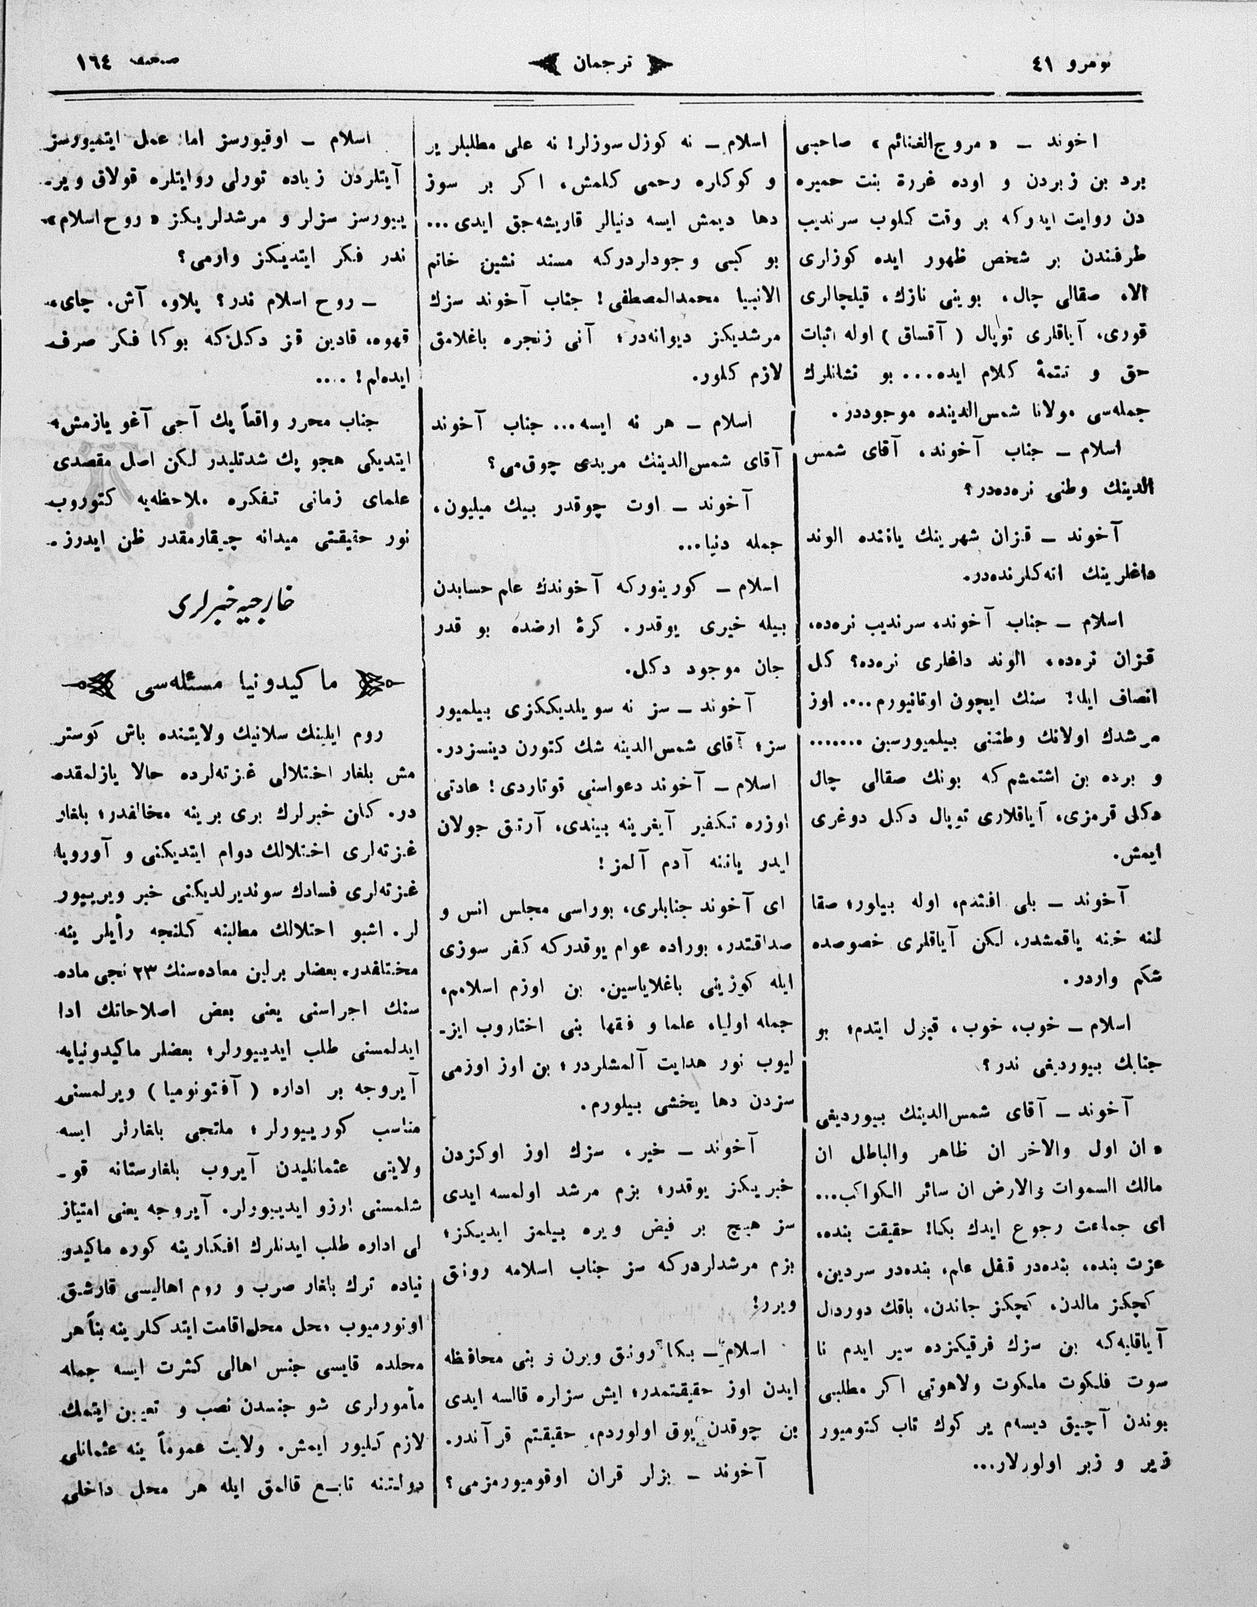 نومرو ٤١
ترجمان
صحيفه ١٦٤
اخوند ــ «مروج الغنائم» صاحبى
برد بن زبردن و اوده غررة بنت حميره
دن روايت ايدركه بر وقت كلوب سرنديب
طرفندن بر شخص ظهور ايده كوزلرى
الا، صقالى چال، بوينى نازك، قيلچالرى
قورى، آياقلرى توپال (آقساق) اوله اثبات
حق و تتمۀ كلام ايده... بو نشانلرك
جمله‌سى مولانا شمس‌الدينده موجوددر.
اسلام ــ جناب آخوند، آقاى شمس
الدينك وطنى نره‌ده‌در؟
آخوند ــ قزان شهرينك ياننده الوند
داغلرينك اتكلرنده‌در.
اسلام ــ جناب آخوند، سرنديب نره‌ده،
قزان نره‌ده، الوند داغلرى نره‌ده؟ كل
انصاف ايله! سنك ايچون اوتانيورم.... اوز
مرشدك اولانك وطننى بيلميورسين .......
و برده بن اشتمشم كه بونك صقالى چال
دكل قرمزى، آياقلارى توپال دكل دوغرى
ايمش.
آخوند ــ بلى افندم، اوله بيلور؛ صقا
لنه خنه ياقمشدر، لكن آياقلرى خصوصده
شكم واردر.
اسلام ــ خوب، خوب، قبول ايتدم؛ بو
جنابك بيورديغى ندر؟
آخوند ــ آقاى شمس‌الدينك بيورديغى
«ان اول والاخر ان ظاهر والباطل ان
مالك السموات والارض ان سائر الكواكب...
اى جماعت رجوع ايدك بكا! حقيقت بنده،
عزت بنده، بنده‌در قفل عام، بنده‌در سردين،
كچكز مالدن، كچكز جاندن، باقك دوردل
آياقليه‌كه بن سزك فرقيكزده سير ايدم نا
سوت فلكوت ملكوت ولاهوتى اكر مطلبى
بوندن آچيق ديسه‌م ير كوك تاب كتوميور
زير و زبر اولورلار...
اسلام ــ نه كوزل سوزلر! نه على مطلبلر ير
و كوكلره رحمى كلمش، اكر بر سوز
دها ديمش ايسه دنيالر قاريشه‌جق ايدى...
بو كبى وجودلردركه مسند نشين خاتم
الانبيا محمدالمصطفى! جناب آخوند سزك
مرشديكز ديوانه‌در؛ آنى زنجره باغلامق
لازم كلور.
اسلام ــ هر نه ايسه... جناب آخوند
آقاى شمس‌الدينك مريدى چوق‌مى؟
آخوند ــ اوت چوقدر بيك ميليون،
جمله دنيا...
اسلام ــ كورينوركه آخوندك علم حسابدن
بيله خبرى يوقدر. كرۀ ارضده بو قدر
جان موجود دكل.
آخوند ــ سز نه سويلديككزى بيلميور
سز؛ آقاى شمس‌الدينه شك كتورن دينسزدر.
اسلام ــ آخوند دعواسنى قوتاردى! عادتى
اوزره تكفير آيغرينه بيندى، آرتق جولان
ايدر ياننه آدم آلمز!
اى آخوند جنابلرى، بوراسى مجلس انس و
صداقتدر، بوراده عوام يوقدركه كفر سوزى
ايله كوزينى باغلاياسين. بن اوزم اسلامم،
جمله اولياء علما و فقها بنى اختاروب ايز-
ليوب نور هدايت آلمشلردر؛ بن اوز اوزمى
سزدن دها يخشى بيلورم.
آخوند ــ خير، سزك اوز اوكزدن
خبريكز يوقدر؛ بزم مرشد اولمسه ايدى
سز هيچ بر فيض ويره بيلمز ايديكز؛
بزم مرشدلردركه سز جناب اسلامه رونق
ويرر!
اسلام ــ بكا رونق ويرن و بنى محافظه
ايدن اوز حقيقتمدر؛ ايش سزلره قالسه ايدى
بن چوقدن يوق اولوردم، حقيقتم قرآندر.
آخوند ــ بزلر قران اوقوميورمزمى؟
اسلام ــ اوقيورسز اما عمل ايتميورسز
آيتلردن زياده تورلى روايتلره قولاق وير-
ييورسز سزلر و مرشدلريكز «روح اسلام»
ندر فكر ايتديكز وارمى؟
ــ روح اسلام ندر؟ پلاو، آش، چاى،
قهوه، قادين قز دكل كه بوكا فكر صرف
ايده‌لم! ....
جناب محرر واقعاً پك آجى آغو يازمش،
ايتديكى هجو پك شدتليدر لكن اصل مقصدى
علماى زمانى تفكره ملاحظه‌يه كتوروب
نور حقيقتى ميدانه چيقارمقدر ظن ايدرز.
خارجيه خبرلرى
ماكيدونيا مسئله‌سى
روم ايلينك سلانيك ولايتنده باش كوستر
مش بلغار اختلالى غزته‌لرده حالا يازلمقده
در. كلن خبرلرك برى برينه مخالفدر؛ بلغار
غزته‌لرى اختلالك دوام ايتديكنى و آوروپا
غزته‌لرى فسادك سونديرلديكنى خبر ويرييور
لر. اشبو احتلالك مطالبنه كلنجه رأيلر ينه
مختلفدر، بعضلر برلين معاده‌سنك ٢٣ نجى ماده
سنك اجراسنى يعنى بعض اصلاحاتك ادا
ايدلمسنى طلب ايدييورلر؛ بعضلر ماكيدونيايه
آيروجه بر اداره (آفتونوميا) ويرلمسنى
مناسب كورييورلر؛ ملتجى بلغارلر ايسه
ولايتى عثمانليدن آيروب بلغارستانه قو-
شلمسنى ارزو ايدييورلر. آيروجه يعنى امتياز
لى اداره طلب ايدنلرك افكارينه كوره ماكيدو
نياده ترك بلغار صرب و روم اهاليسى قارشق
اوتورميوب محل محل اقامت ايتدكلرينه بناً هر
محلده قايسى جنس اهالى كثرت ايسه جمله
مأمورلرى شو جنسدن نصب و تعيين ايتمك
لازم كليور ايمش. ولايت عموماً ينه عثمانلى
دولتنه تابع قالمق ايله هر محل داخلى